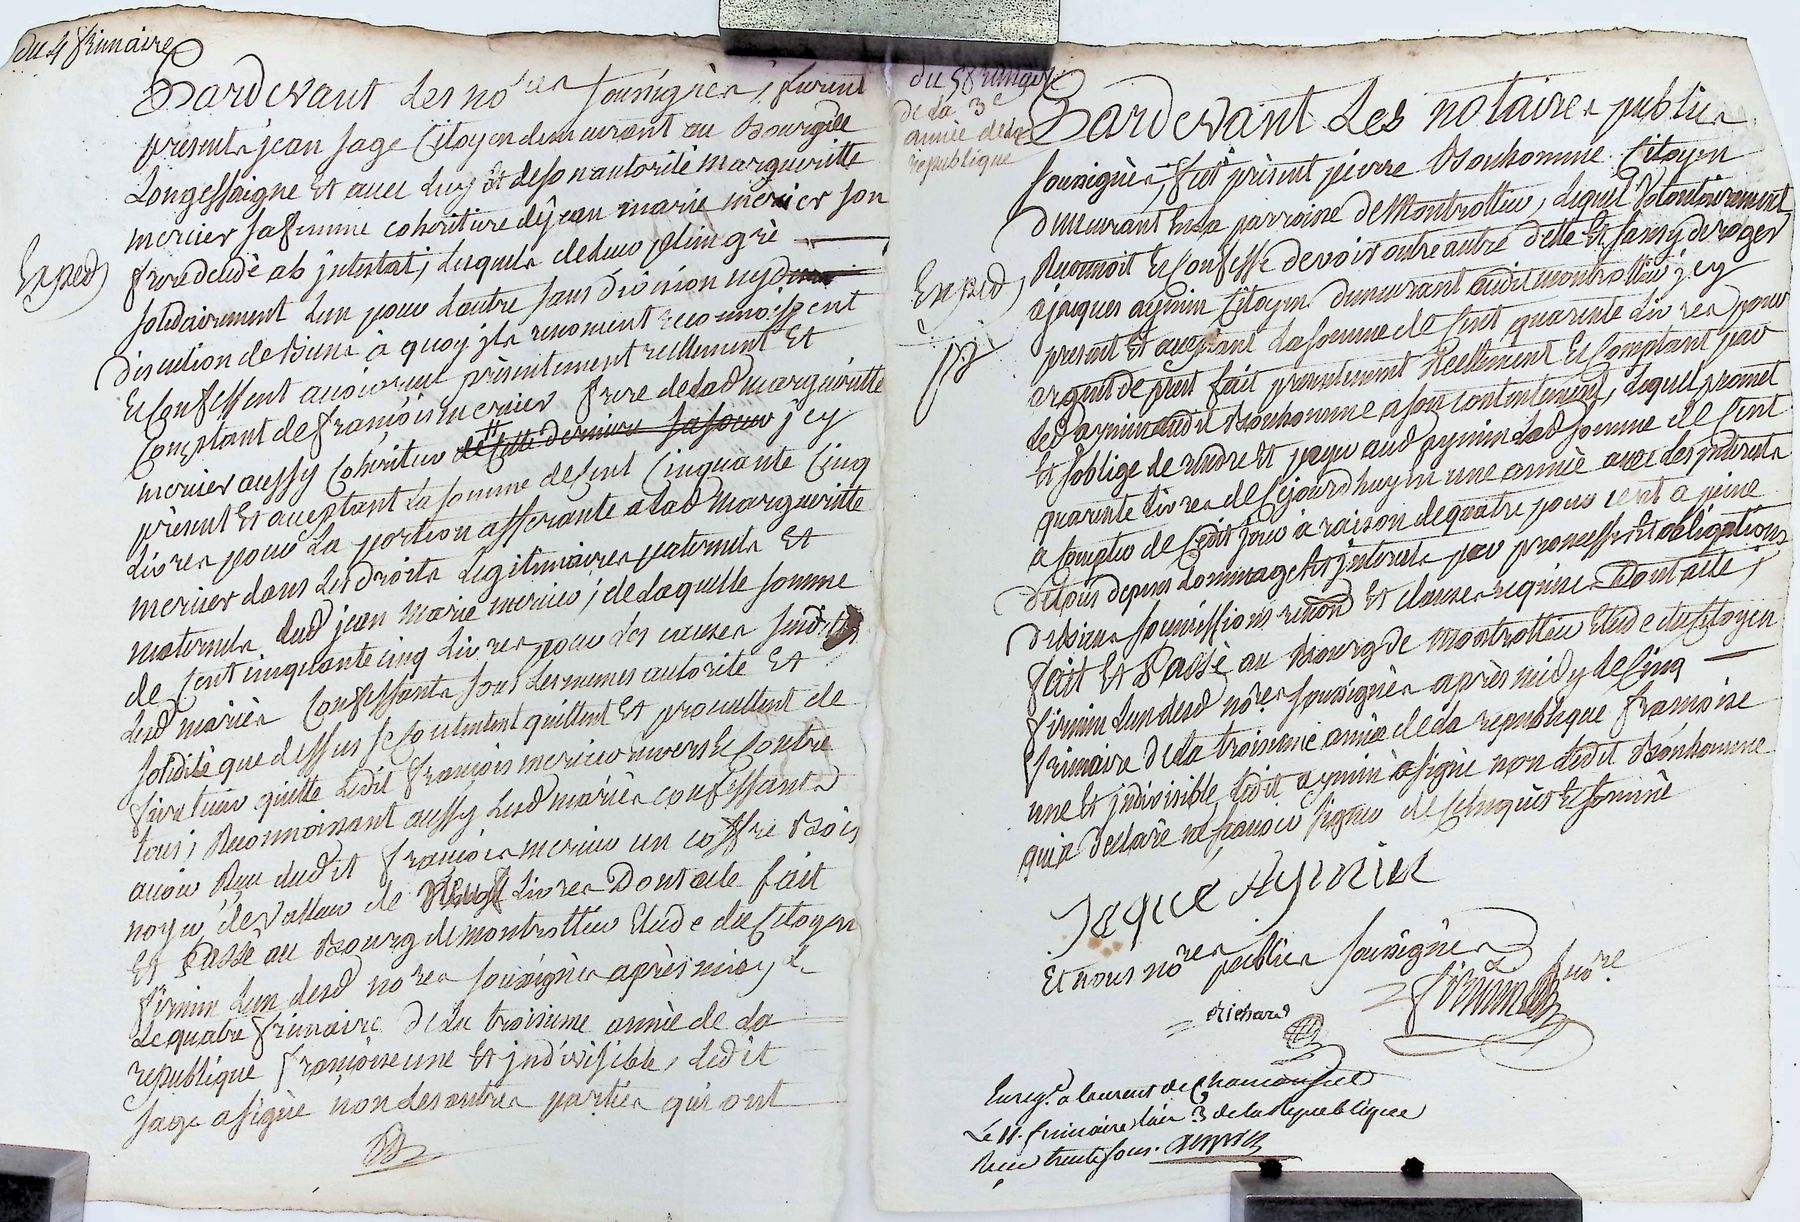 du 4 frimaire
Pardevant Les no.res soussignés, furent
presents jean sage Citoyen demeurant au Bourg de
Longessaigne Et avec luy Et de son autorité margueritte
mercier sa femme cohéritiere de jean marie mercier son
Exped
frere décédé ab intestat, lesquels de leur plein gré
solidairement l'un pour l'autre sans division ny
discution de Biens à quoy ils renoncent reconnoissent
Et Confessent avoir reçu présentement réellement Et
Comptant de françois mercier frere de lad margueritte
mercier aussy Cohéritier de Cette derniere sa soeur jcy
présent Et acceptant la somme de Cent Cinquante Cinq
Livres pour La portion afferante a lad margueritte
mercier dans Les droits Légitimaires paternels Et
maternels dud jean marie mercier; de laquelle somme
de Cent cinquante cinq Livres pour Les causes susd
Lesd mariés Confessants sous Les memes autorité Et
solidité que dessus se Contentent quittent Et promettent de
faire tenir quitte Ledit françois mercier envers Et Contre
tous, Reconnoissant aussy Lesd mariés confessants
avoir Reçu dudit françois mercier un coffre Bois
noyer de Valleur de Neuf Livres Dont acte fait
Et Passé au Bourg de montrottier Etude du Citoyen
firmin l'un desd no.res soussignés après midy le
Le quatre frimaire De La troisieme année de La
republique françoise une Et jndivisible, Ledit
sage a signé non les autres parties qui ont
du 5 frimaire
de la 3e
année de la
republique
Pardevant Les notaires publics
soussignés, fut présent pierre Bonhomme Citoyen
demeurant En la parroisse de Montrottier, Lequel Volontairement
Reconnoit Et Confesse devoir outre autre dette Et sans y deroger
Exped
a jacques aymin Citoyen demeurant audit montrottier jcy
present Et acceptant La somme de Cent quarante Livres pour
argent de prest fait presentement Réellement Et Comptant par
led aymin audit Bonhomme a son contentement, Lequel promet
Et soblige de rendre Et payer aud aymin Lad somme de Cent
quarante Livres de Cejourdhuy en une année avec Les jnterests
a Compter de Cedit jour à raison de quatre pour cent a peine
de tous depens dommages Et jnterests par promesses Et obligations
de Biens soumissions renond Et clauses requises Dont acte;
fait Et Passé au Bourg de Montrottier Etude du Citoyen
firmin L'un desd no.res soussignés après midy le Cinq
frimaire De La troisieme année de La republique françoise
une Et jndivisible, Ledit aymin a signé non Ledit Bonhomme
qui a Déclaré ne sçavoir signer de Ce Enquis Et sommé
Jaque Aymin
Et nous no.res publics soussignés
Richard
firmin no.re
Enreg.é a laurent de Chamousset
Le 11. frimaire L'an 3 de la Republique
Reçu trente sous.